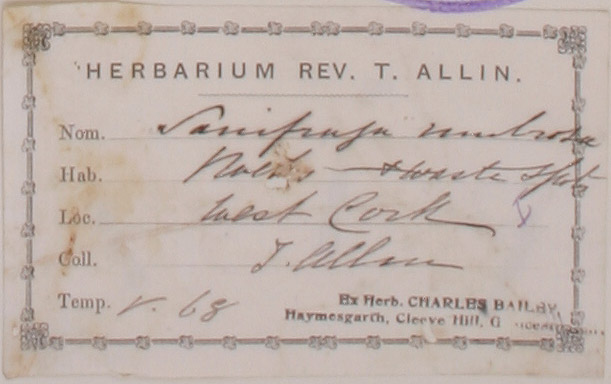 HERBARIUM REV. T. ALLIN.
Nom. Saxifraga umbrosa
Hab. Rocks & waste spots
Loc. West Cork
Coll. T. Allin
Temp. V. 68
Ex Herb. CHARLES BAILEY,
Haymesgarth, Cleeve Hill, G